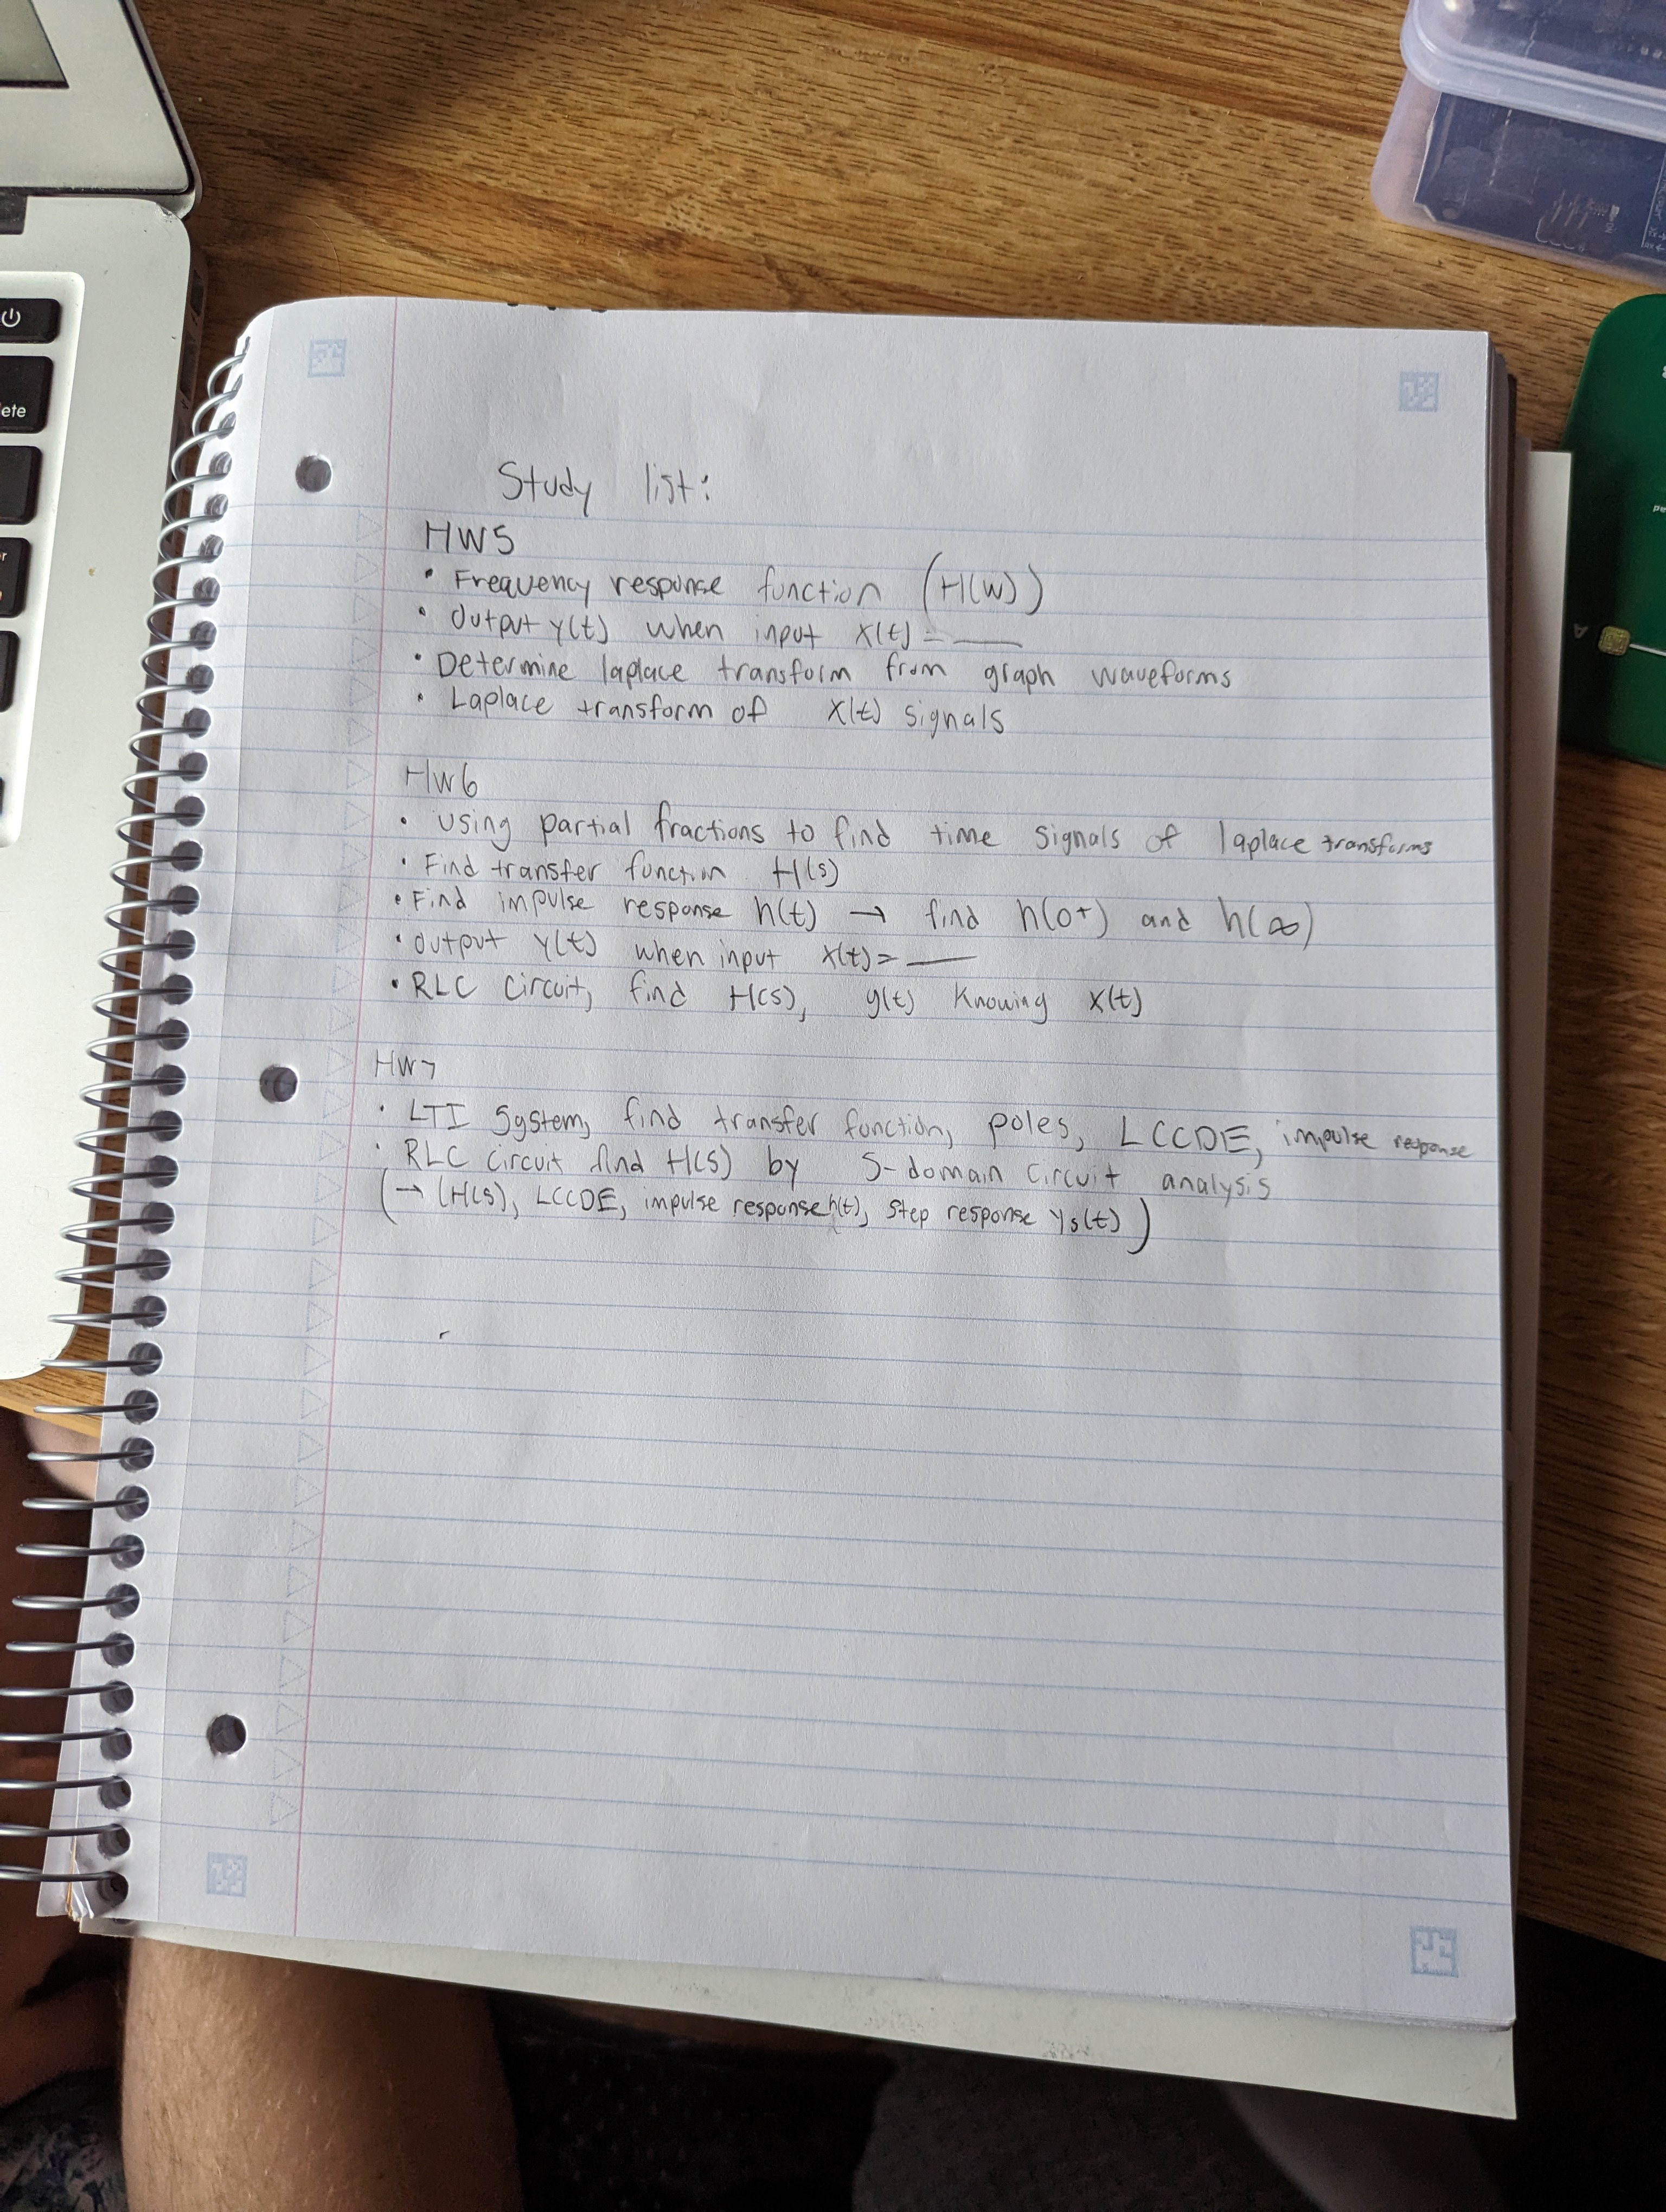 Study list:
HW5
• Frequency response function (H(w))
• Output y(t) when input x(t) = ___
• Determine laplace transform from graph waveforms
• Laplace transform of x(t) signals
HW6
• using partial fractions to find time signals of laplace transforms
• Find transfer function H(s)
• Find impulse response h(t) → find h(0+) and h(∞)
• output y(t) when input x(t) = ___
• RLC circuit, find H(s), y(t) knowing x(t)
HW7
• LTI System, find transfer function, poles, LCCDE, impulse response
• RLC circuit find H(s) by S-domain circuit analysis
(→ (H(s), LCCDE, impulse response h(t), step response ys(t))
ete